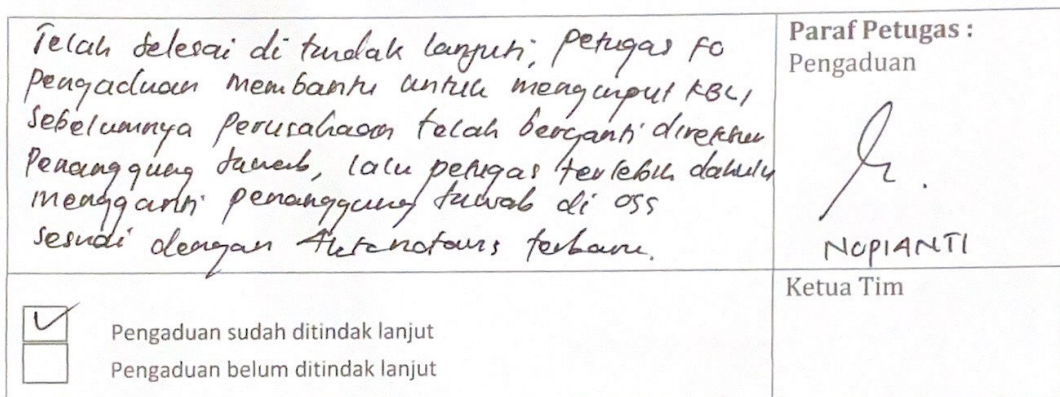 Telah selesai di tindak lanjuti, petugas FO
Pengaduan membantu untuk menginput KBLI
sebelumnya Perusahaan telah berganti direktur
Penanggung Jawab, lalu petugas terlebih dahulu
mengganti penanggung jawab di OSS
sesuai dengan Akta notaris terbaru.
Paraf Petugas :
Pengaduan
NOPIANTI
Pengaduan sudah ditindak lanjut
Pengaduan belum ditindak lanjut
Ketua Tim